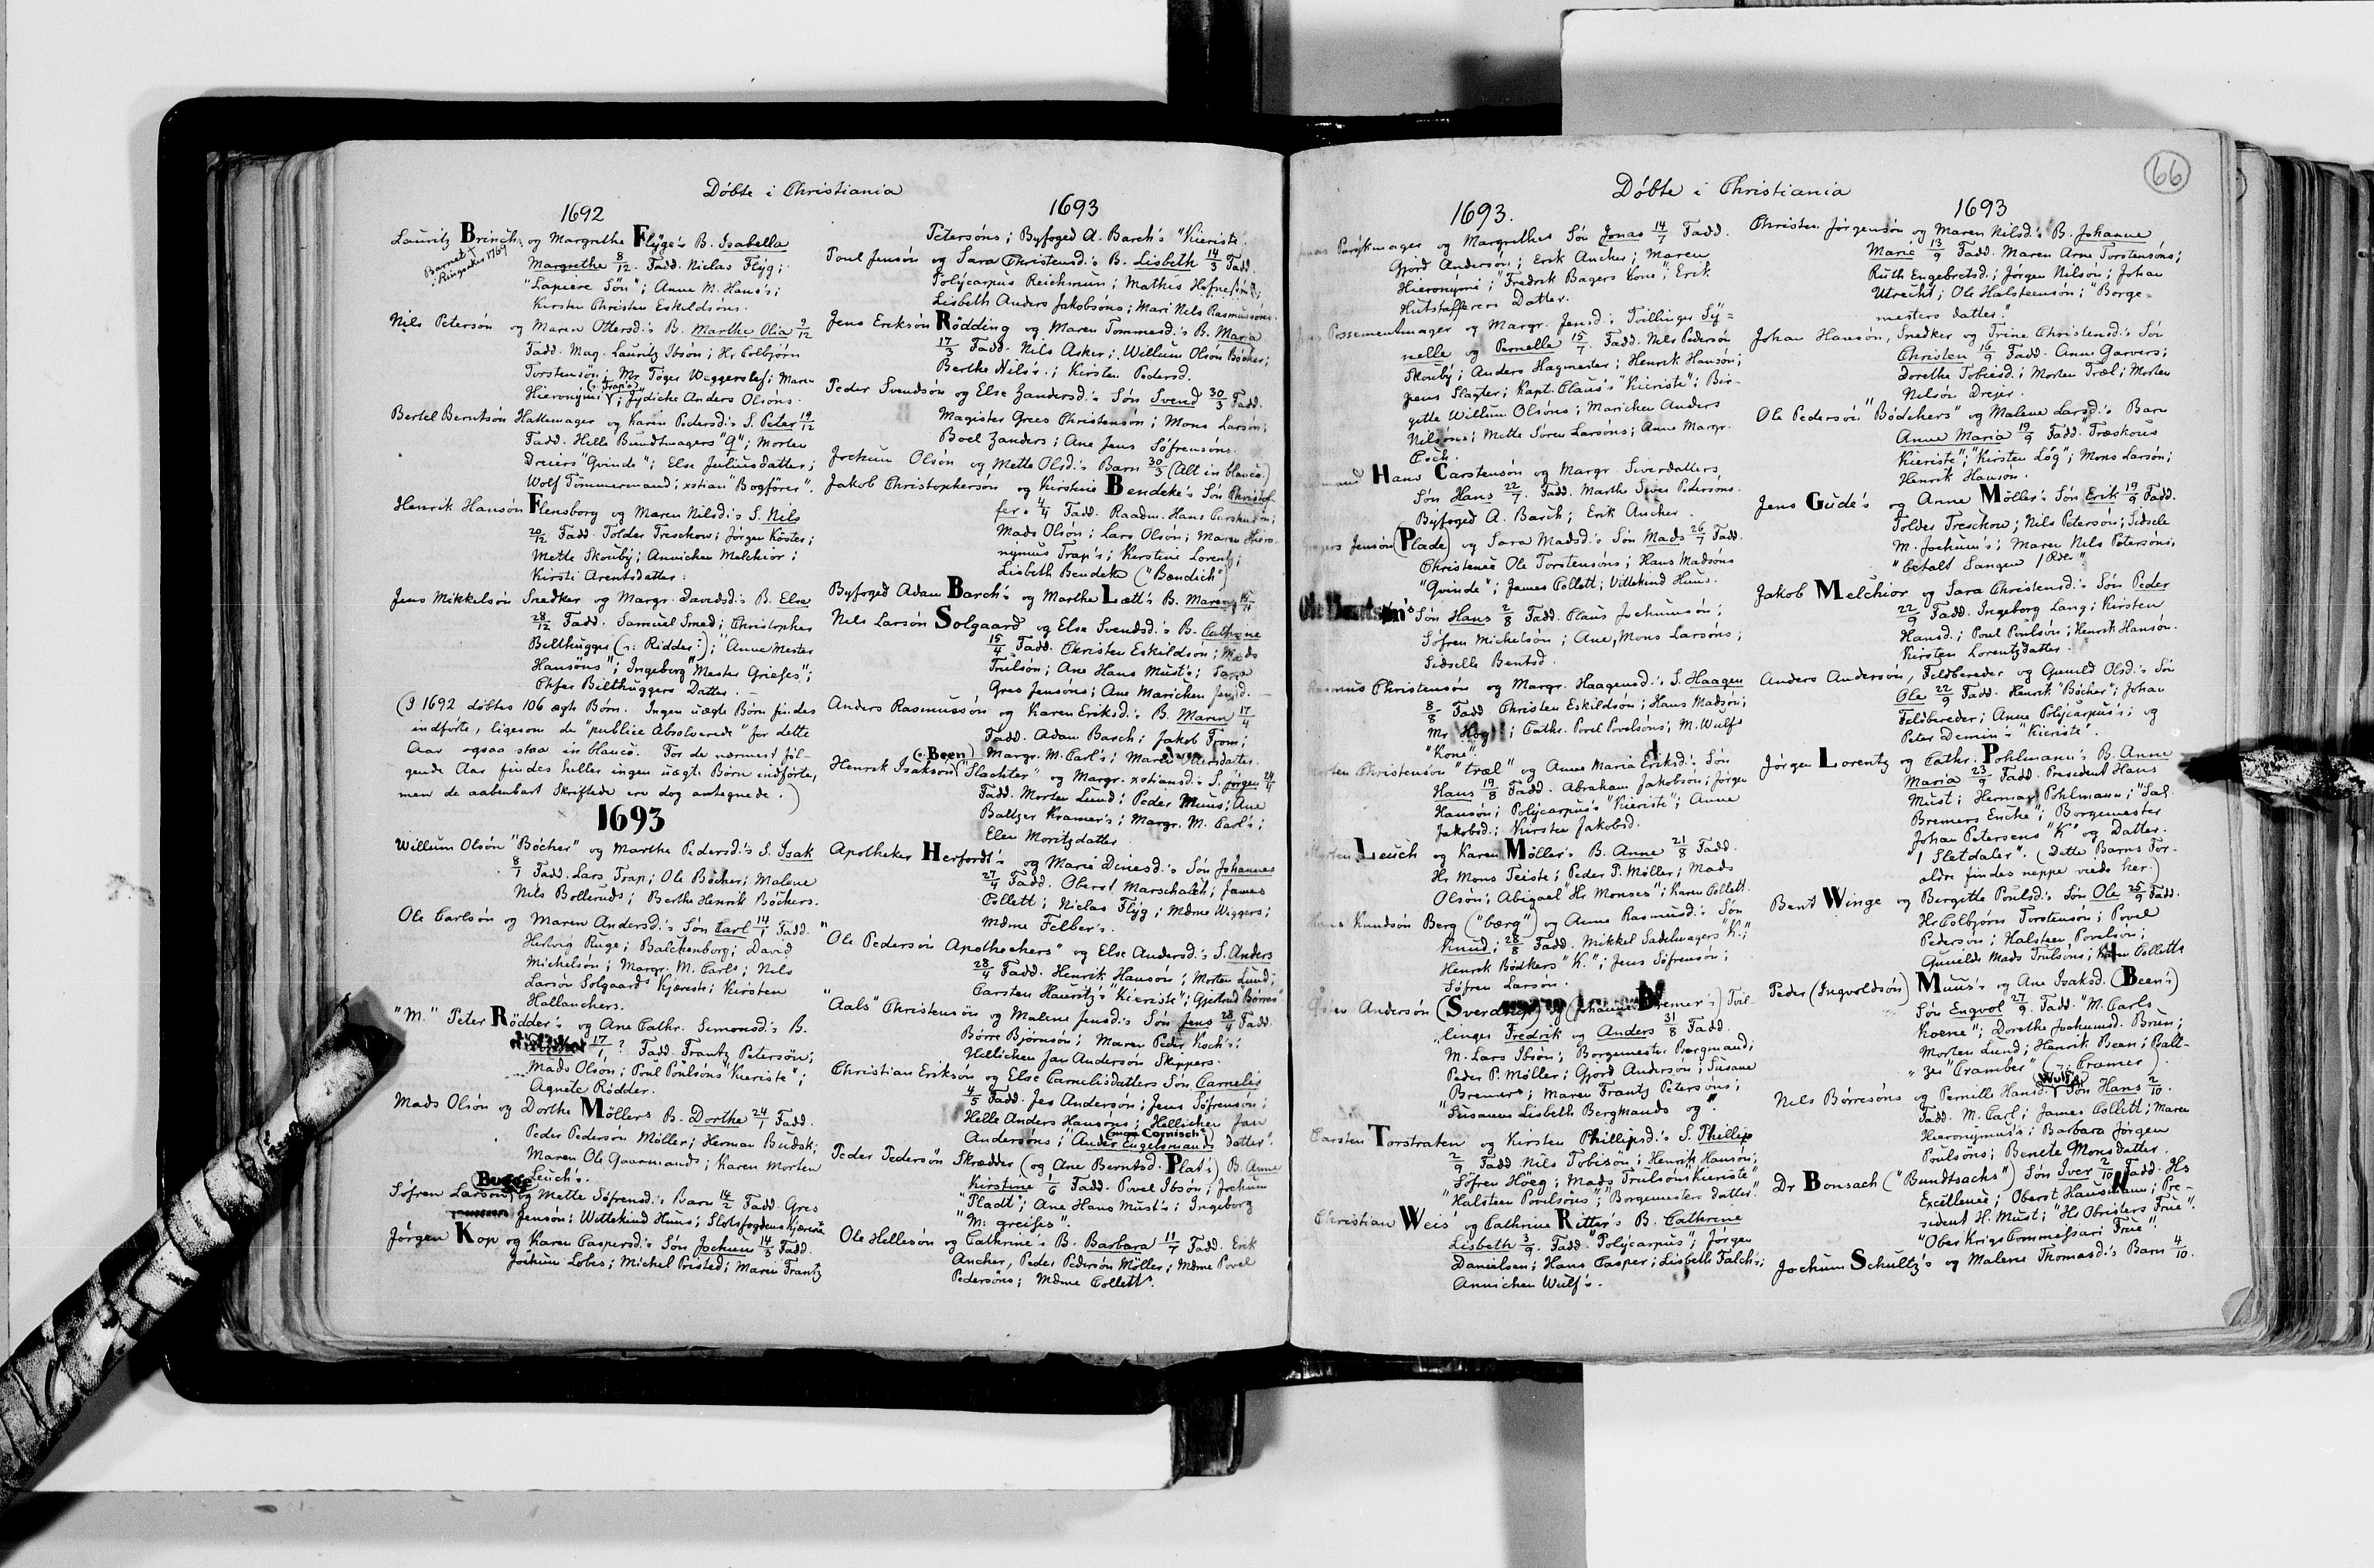 Döbte i Christiania
1692
Lauritz Brinch og Margrethe Flyge's B. Isabella
Barnet +
Ringsaker 1769
Margrethe 8/12. Fadd. Niclas Flyg;
"Lapiere Sön"; Anne M. Hans's;
Kirsten Christen Eskildsöns.
Nils Petersön og Maren Ottersd.'s B. Marthe Olia 9/12
Fadd. Mag. Lauritz Ibsön; Hr Colbjörn
Torstensön; Mr Töger Wiggerslef; Maren
(: Trap's)
Hieronymi; Jydicke Anders Olsöns.
Bertel Berntsön Hattemager og Karen Pedersd.'s S. Peter 19/12
Fadd. Helle Bundtmagers "Q"; Morten
Dreiers "Qvinde"; Else Juliusdatter;
Wolf Tömmermand; xstian "Bogförer".
Henrik Hansön Flensborg og Maren Nilsd.'s S. Nils
20/12 Fadd. Tolder Treschow; Jörgen Köster;
Mette Skouby; Annichen Melchior;
Kirsti Arentsdatter.
Jens Mikkelsön Snedker og Margr. Davidsd.'s B. Else
28/12 Fadd. Samuel Smed; Christopher
Bilthugger (: Ridder:); "Anne Mester
Hansöns"; Ingeborg "Mester Griefes";
Chfer Bilthuggers Datter.
(I 1692 döbtes 106 ægte Börn. Ingen uægte Börn findes
indförte, ligesom de "publice Absolverede" for dette
Aar ogsaa staa in blanco. For de nærmest föl-
gende Aar findes heller ingen uægte Börn indförte,
men de aabenbart Skriftede ere dog antegnede.)
1693
Willum Olsön "Böcher" og Marthe Pedersd.'s S. Isak
8/1 Fadd. Lars Trap; Ole Böcher; Malene
Nils Bolleruds; Berthe Henrik Böckers.
Ole Carlsön og Maren Andersd.'s Sön Carl 14/1 Fadd.
Hedvig Ruge; Balckenborg; David
Michelsön; Margr. M. Carls; Nils
Larsön Solgaards Kjæreste; Kirsten
Hollanchers.
"M." Peter Rödder's og Ane Cathr. Simonsd.'s B.
17/1? Fadd. Frantz Petersön;
Mads Olsön; Poul Poulsöns "Kieriste";
Agnete Rödder.
Mads Olsön og Dorthe Möllers B. Dorthe 24/1 Fadd.
Peder Pedersön Möller; Herman Budsk;
Maren Ole Gaarmands; Karen Morten
Leuch's.
Bugge
Söfren Larsön og Mette Söfrensd.'s Barn 14/2 Fadd Gres
Jensön; Wittekind Huus; Slotsfogdens Kjæreste
Jörgen Kop og Karen Caspersd.'s Sön Jochum 14/3 Fadd.
Jochum Lobes; Michel Pristed; Maren Frantz
1693
Petersöns; Byfoged A. Barch's "Kieriste.
Poul Jensön og Sara Christensd.'s B. Lisbeth 14/3 Fadd.
Polycarpus Reichmun; Mathis
Lisbeth Anders Jakobsöns; Mari Nils Rasmussöns.
Jens Eriksön Rödding og Maren Tommesd.'s B. Maria
17/3 Fadd. Nils Asker; Willum Olsön Böcher;
Berthe Nils's; Kirsten Pedersd.
Peder Svendsön og Else Zandersd.'s Sön Svend 30/3 Fadd.
Magister Grees Christensön; Mons Larsön;
Boel Zanders; Ane Jens Söfrensöns.
Jochum Olsön og Mette Olsd.'s Barn 30/3 (Alt in blanco.)
Jakob Christophersön og Kirstine Bendeke's Sön Christof-
fer 4/4 Fadd. Raadm. Hans Carstensön;
Mads Olsön; Lars Olsön; Maren Hiero-
nymus Trap's; Kirstine Lorentz;
Lisbeth Bendeke ("Bændich")
Byfoged Adam Barch's og Marthe Lætt's B. Maren
Nils Larsön Solgaard og Else Svendsd.'s B. Cathrine
15/4 Fadd. Christen Eskildsön; Mads
Trulsön; Ane Hans Must's; Sara
Gres Jensöns; Ane Marichen Jensd.
Anders Rasmussön og Karen Eriksd.'s B. Maren 17/4
Fadd. Adam Barch; Jakob From;
Margr. M. Carl's;
(: Been)
Henrik Isaksön "Slachter" og Margr. xstiansd.'s S. Jörgen 24/4
Fadd. Morten Lund; Peder Muus; Ane
Baltzer Kramer's; Margr. M. Carl's;
Elen Moritzdatter
Apotheker Herfordt's og Marie Dinesd.'s Sön Johannes
27/4 Fadd. Oberst Marschalch; James
Collett; Niclas Flyg; Mdme Wiggers;
Mdme Felber's.
"Ole Pedersön Apothechers" og Else Andersd.'s S. Anders
28/4 Fadd. Henrik Hansön; Morten Lund;
Carsten Hauritz's "Kieriste"; Gjertrud "Börres"
"Aals" Christensön og Malene Jensd.'s Sön Jens 28/4 Fadd.
Börre Björnsön; Maren Peder Koch's;
Hellichen Jan Andersön Skipper.
Christian Eriksön og Else Cornelisdatters Sön Cornelis
4/5 Fadd. Jes Andersön; Jens Söfrensön;
Helle Anders Hansöns; Hellichen Jan
Andersöns; "Ander Engelsmands Datter".
Peder Pedersön Skrædder (og Ane Berntsd. Plat's) B. Anne
Kirstine 1/6 Fadd. Povel Ibsön; Jochum
"Pladt"; Ane Hans Must's; Ingeborg
"M: greifes".
Ole Hellisön og Cathrine's B. Barbara 11/7 Fadd. Erik
Ancher, Peder Pedersön Möller; Mdme Povel
Pedersöns; Mdme Collett's.
66
Döbte i Christiania
1693.
og Margrethes Sön Jonas 14/7 Fadd.
Gjord Andersön; Erik Ancher; Maren
Hieronymi; "Fredrik Bagers Kone"; Erik
Hutstafferers Datter.
Possementmager og Margr. Jensd.'s Tvillinger Sy-
nelle og Pernelle 15/7. Fadd. Nils Pedersön
Skouby; Anders Hagmester; Henrik Hansön;
Jens Slagter; Kapt. Claus's "Kieriste"; Bir-
gitte Willum Olsöns; Marichen Anders
Nilsöns; Mette Sören Larsöns; Anne Margr.
Esch.
Hans Carstensön og Margr. Siverdatters
Sön Hans 22/7. Fadd. Marthe Siver Pedersöns.
Byfoged A. Barch; Erik Ancher
Jensön (Plade) og Sara Madsd.'s Sön Mads 26/7 Fadd.
Christence Ole Torstensöns; Hans Madsöns
"Qvinde"; James Collett; Vittekind Huus.
Sön Hans 2/8 Fadd. Claus Jochumsön;
Söfren Michelsön; Ane Mons Larsöns;
Sidselle Bentsd.
Rasmus Christensön og Margr. Haagensd.'s S. Haagen
8/8 Fadd Christen Eskildsön; Hans Madsön;
Mr; Cathr. Povel Povelsöns; M. Wulfs
"Kone".
Morten Christensön "træl" og Anne Maria Eriksd.'s Sön
Hans 19/8 Fadd. Abraham Jakobsön; Jörgen
Hansön; Polycarpus's "Kieriste"; Anne
Jakobsd.; Kirsten Jakobsd.
Morten Leuch og Karen Möller's B. Anne 21/8 Fadd.
Hr Mons Teiste; Peder P. Möller; Mads
Olsön; Abigael "Hr Monses"; Karen Collett.
Hans Knudsön Berg ("bærg") og Anne Rasmusd.'s Sön
Knud; 28/8 Fadd. Mikkel Sadelmagers "K.";
Henrik Bödkers "K."; Jens Söfrensön;
Söfren Larsön.
Andersön Bremer's) Tvil-
linger Fredrik og Anders 31/8 Fadd.
M. Lars Ibsön; Borgemester Bergmand;
Peder P. Möller; Gjord Andersön; Susane
Bremers; Maren Frantz Petersöns;
"Susanne Lisbeth Bergmands og".
Carsten Torstraten og Kirsten Phillipsd.'s S. Phillip
2/9 Fadd. Nils Tobisön; Henrik Hansön;
Söfren Höeg; Mads Trulsöns "Kieriste"
"Halsteen Poulsöns"; "Borgemesters Datter".
Christian Weis' og Cathrine Ritter's B. Cathrine
Lisbeth 3/9. Fadd. "Polycarpus"; Jörgen
Danielsen; Hans Casper; Lisbeth Falch's;
Annichen Wulf's.
1693
Christen Jörgensön og Maren Nilsd.'s B. Johanne
Marie 13/9 Fadd. Maren Arne Torstensöns;
Ruth Engebretsd.; Jörgen Nilsön; Johan
Utrecht; Ole Halsteensön; "Borge-
mesters datter".
Johan Hansön, Snedker og Trine Christensd.'s Sön
Christen 16/9 Fadd. Anne Garvers;
Dorethe Tobiesd.; Morten Træl; Morten
Nilsön Drejer.
Ole Pedersön "Bödchers" og Malene Larsd.'s Barn
Anne Maria 19/9 Fadd. "Træskous
Kieriste"; "Kirsten Lög"; Mons Larsön;
Henrik Hansön.
Jens Gude's og Anne Möller's Sön Erik 19/9 Fadd.
Tolder Treschow; Nils Petersön; Sidsele
M. Jochum's; Maren Nils Petersöns,
"betalt Sangen 1 Rdl."
Jakob Melchior og Sara Christensd.'s Sön Peder
22/9 Fadd. Ingeborg Lang; Kirsten
Hansd.; Poul Poulsön; Henrik Hansön.
Kirsten Lorentzdatter.
Anders Andersön, Feldbereder og Gunild Olsd.'s Sön
Ole 22/9 Fadd. Henrik "Böcher"; Johan
Feldbereder; Anne Polycarpus's; og
Peter Demin's "Kieriste".
Jörgen Lorentz og Cathr. Pohlmann's B. Anne
Maria 23/9 Fadd. President Hans
Must; Herman Pohlmann; "Sal.
Bremers Enche"; Borgemester
Johan Petersens "K" og Datter.
1 Sletdaler". (Dette Barns For-
ældre findes neppe viede her.)
Bent Winge og Birgitte Poulsd.'s Sön Ole 25/9 Fadd.
Hr Colbjörn Torstensön; Povel
Pedersön; Halsteen Povelsön;
Gunilde Mads Trulsöns; Karen Colletts
Peder (Ingvoldsön) Muus's og Ane Isaksd. (Been's)
Sön Engvol 27/9. Fadd. "M. Carls
Koene"; Dorethe Jochumsd. Brun;
Morten Lund; Henrik Been; Balt-
zer "Cramber" (: Cramer).
Wulf's
Nils Börresöns og Pernille Hansd.'s Sön Hans 2/10.
Fadd. M. Carl; James Collett; Maren
Hieronymus's; Barbara Jörgen
Poulsöns; Benete Monsdatter.
Dr Bonsach ("Bundtsachs") Sön Iver 2/10 Fadd. Hs
Excellence; Oberst Hausmann; Pre-
sident H. Must; "Hr Obristers Frue".
"Ober Krigs Commessari Frue".
Jochum Schultz's og Malene Thomasd.'s Barn 4/10.